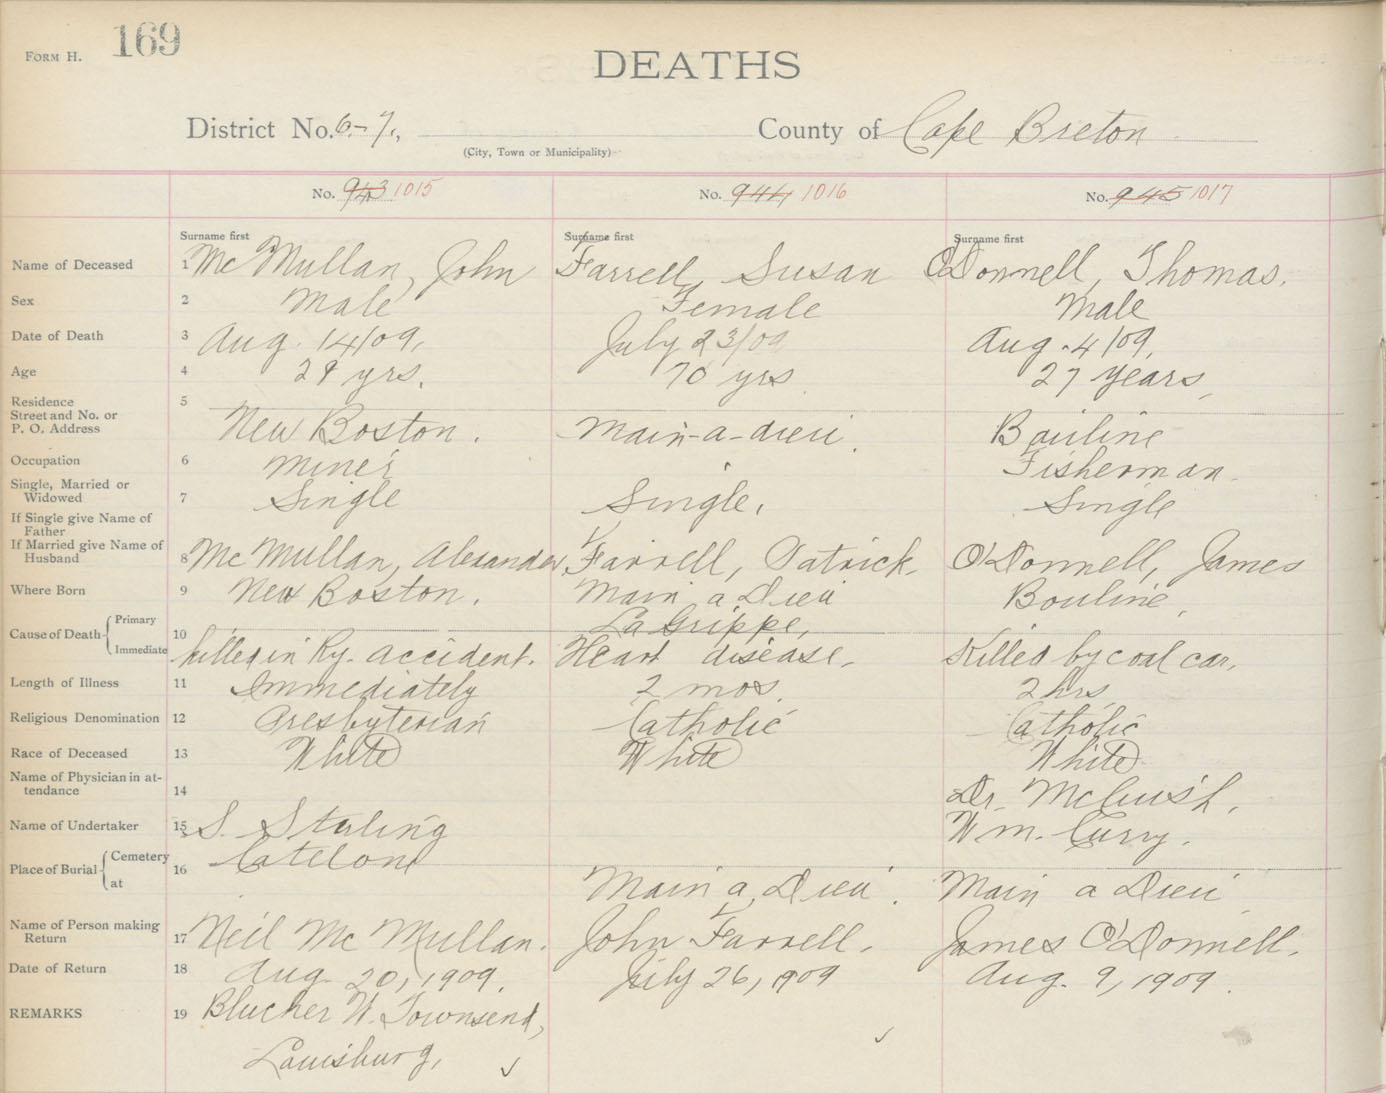 FORM H. 169
DEATHS
District No. 6-7., County of Cape Breton
(City, Town or Municipality)
No. 943 1015 No. 944 1016 No. 945 1017
Surname first Surname first Surname first
Name of Deceased 1 McMullan, John Farrell, Susan O'Donnell, Thomas.
Sex 2 Male Female Male
Date of Death 3 Aug. 14/09. July 23/09 Aug. 4/09.
Age 4 29 yrs. 70 yrs 27 years,
Residence 5
Street and No. or
P. O. Address New Boston. Main-a-dieu. Bauline
Occupation 6 Miner " Fisherman.
Single, Married or
Widowed 7 Single Single. Single
If Single give Name of
Father
If Married give Name of
Husband 8 McMullan, Alexander Farrell, Patrick. O'Donnell, James
Where Born 9 New Boston. Main a Dieu Bouline,
Cause of Death Primary 10 La Grippe,
Immediate killed in Ry. accident. Heart disease. Killed by coal car.
Length of Illness 11 Immediately 2 mos. 2 hrs
Religious Denomination 12 Presbyterian Catholic Catholic
Race of Deceased 13 White White White
Name of Physician in at-
tendance 14 Dr.
Name of Undertaker 15 S. Wm. Curry.
Place of Burial Cemetery 16 Catelone
at Main a Dieu. Main a Dieu
Name of Person making
Return 17 Neil McMullan. John Farrell. James O'Donnell.
Date of Return 18 Aug. 20, 1909. July 26, 1909 Aug. 9, 1909.
REMARKS 19 Blucher W. Townsend,
Louisburg.